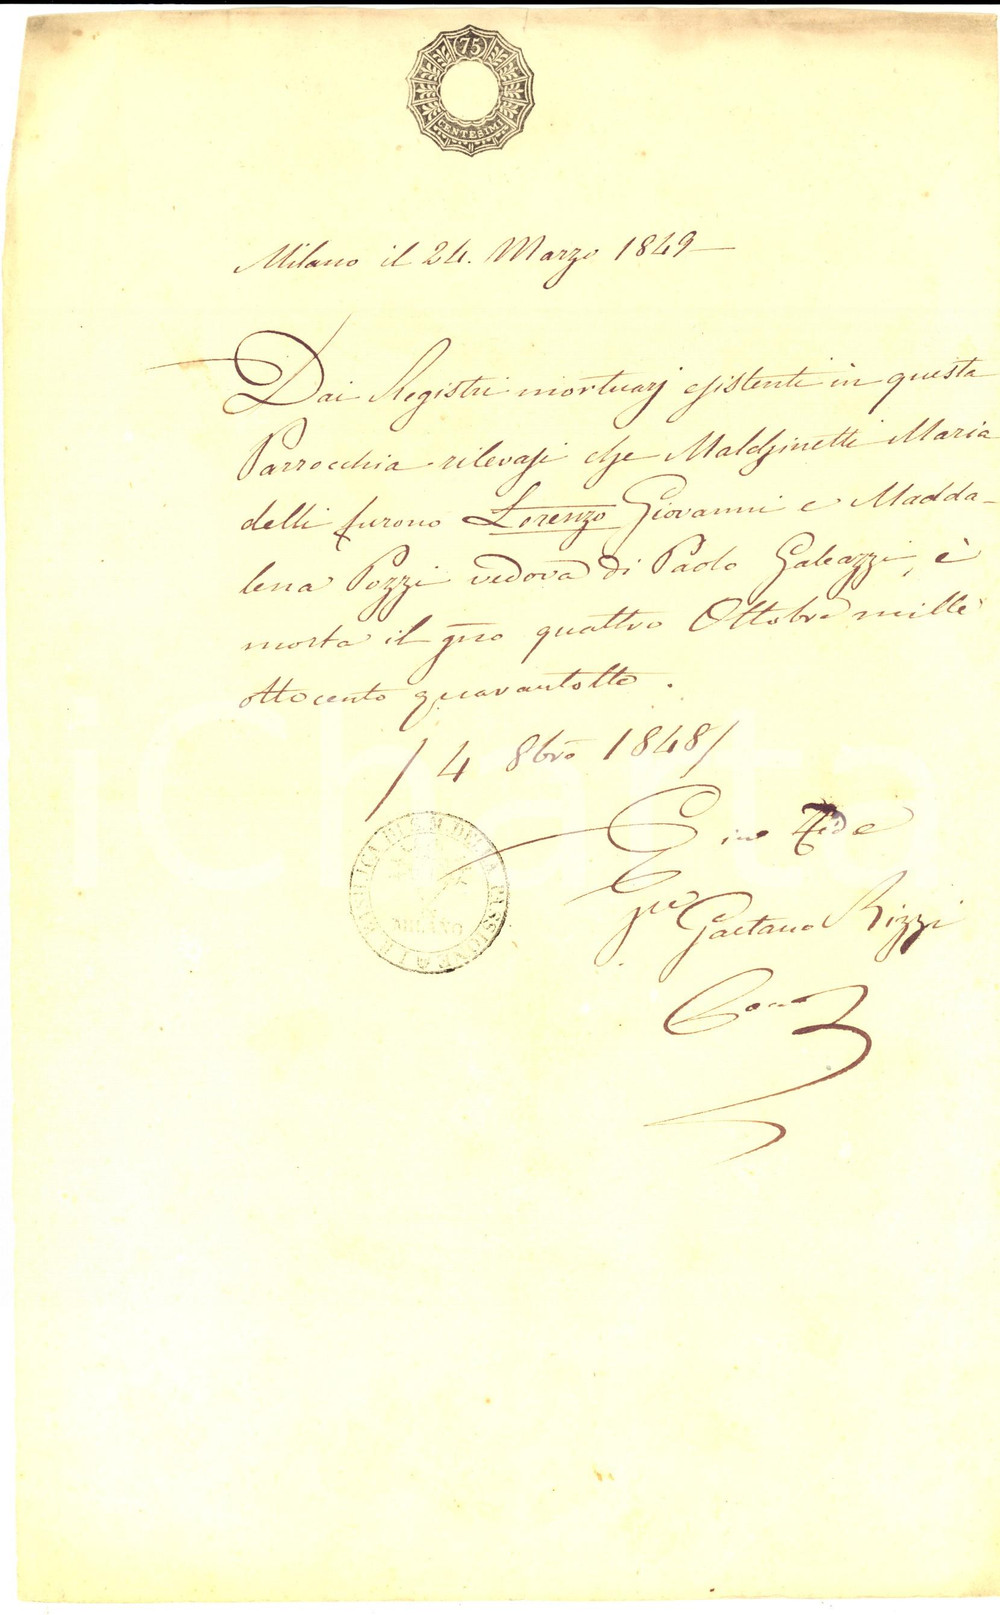 75
CENTESIMI
Milano il 24. Marzo 1849
Dai Registri mortuarj esistenti in questa
Parrocchia rilevasi che Maldginetti Maria
delli furono Lorenzo Giovanni e Madda-
lena Pozzi vedova di Paolo Galeazzi, è
morta il gno quattro Ottobre mille
ottocento quarantotto.
/ 4 8bre 1848 /
In Fede
Gaetano Rizzi
DELLA PASSIONE
MILANO
iCharta